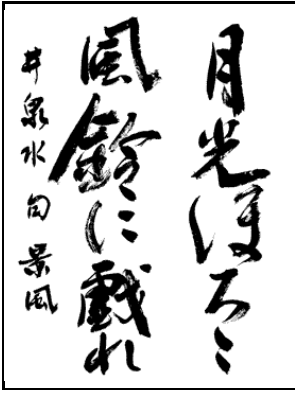 月光ほろほろ
風鈴に戯れ
井泉水句 景風